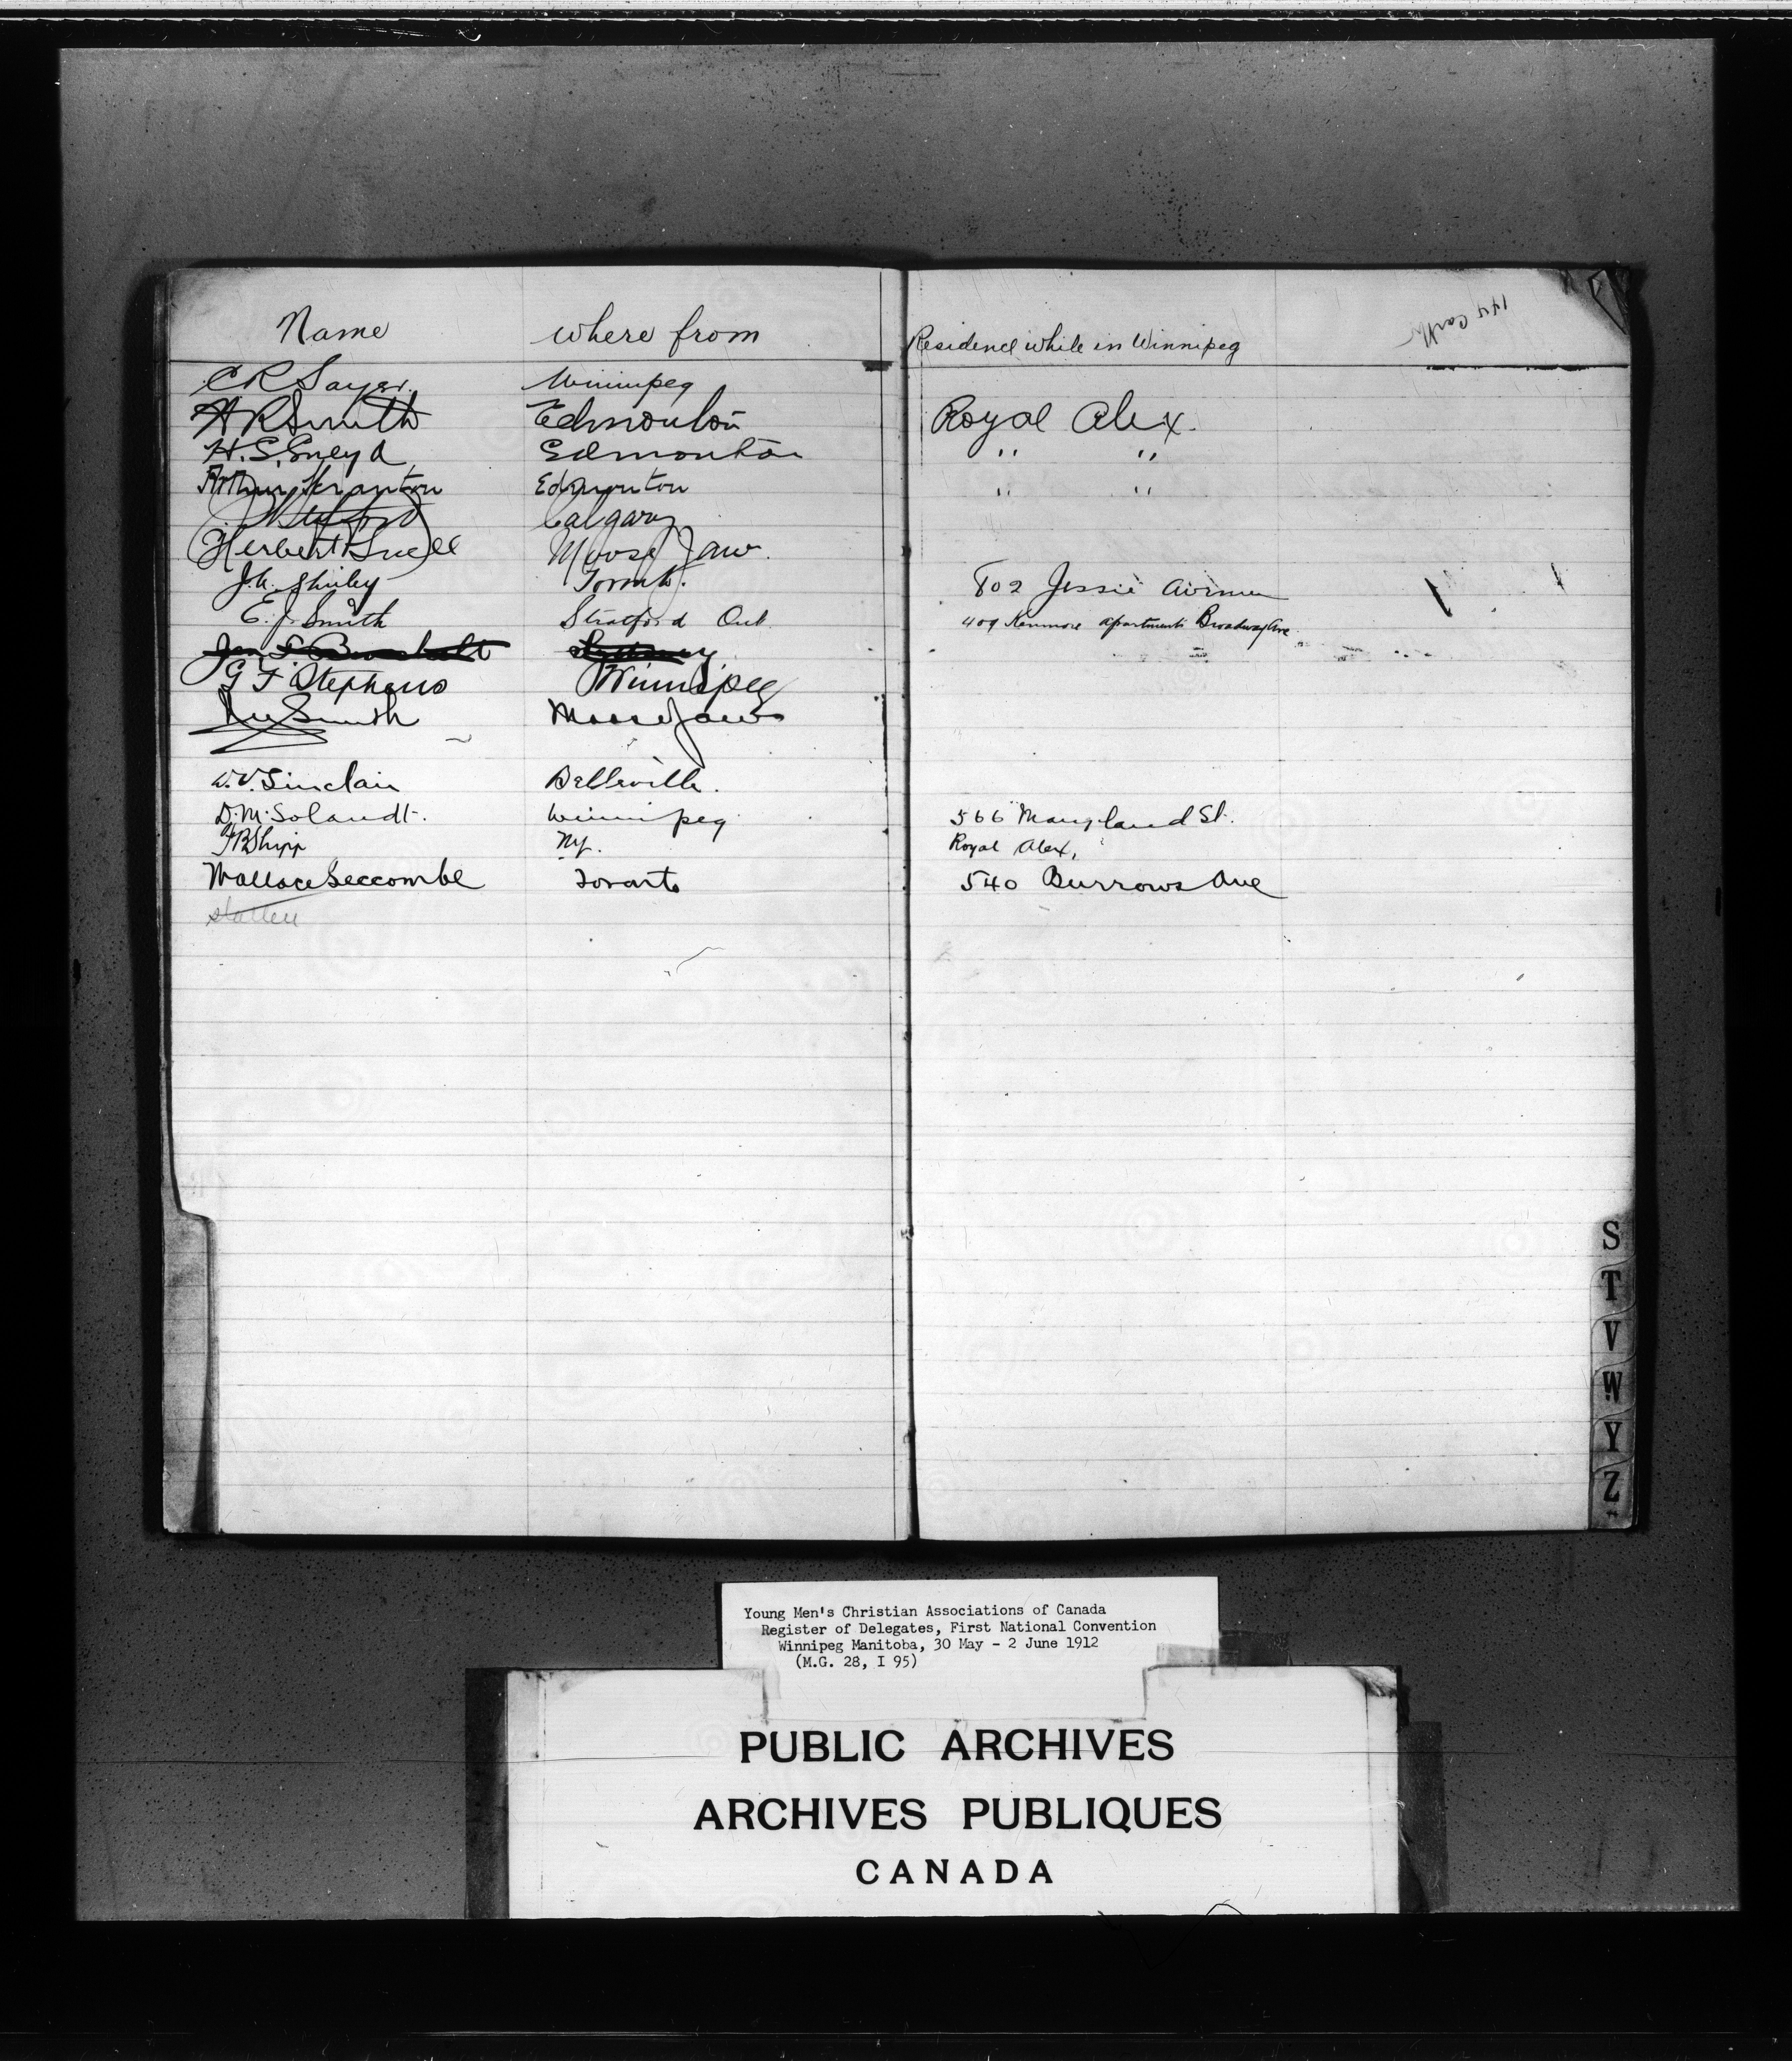 Name where from Residence while in Winnipeg
C R Sayer Winnipeg
H R Smith Edmonton Royal Alex.
H. S. Sneyd Edmonton " "
Arthur Scranton Edmonton " "
Calgary
Herbert Snell Moose Jaw.
J. A. Shirley Toronto. 802 Jessie Avenue
E. J. Smith Stratford Ont. 409 Kenmore Apartments Broadway Ave.
G F Stephens Winnipeg
Smith Moose Jaw
W. V. Sinclair Belleville.
D. M. Solandt. Winnipeg 566 Maryland St.
F B Shipp NY. Royal Alex,
Wallace Seccombe Toronto 540 Burrows Ave
S
T
V
W
Y
Z
Young Men's Christian Associations of Canada
Register of Delegates, First National Convention
Winnipeg Manitoba, 30 May - 2 June 1912
(M.G. 28, I 95)
PUBLIC ARCHIVES
ARCHIVES PUBLIQUES
CANADA